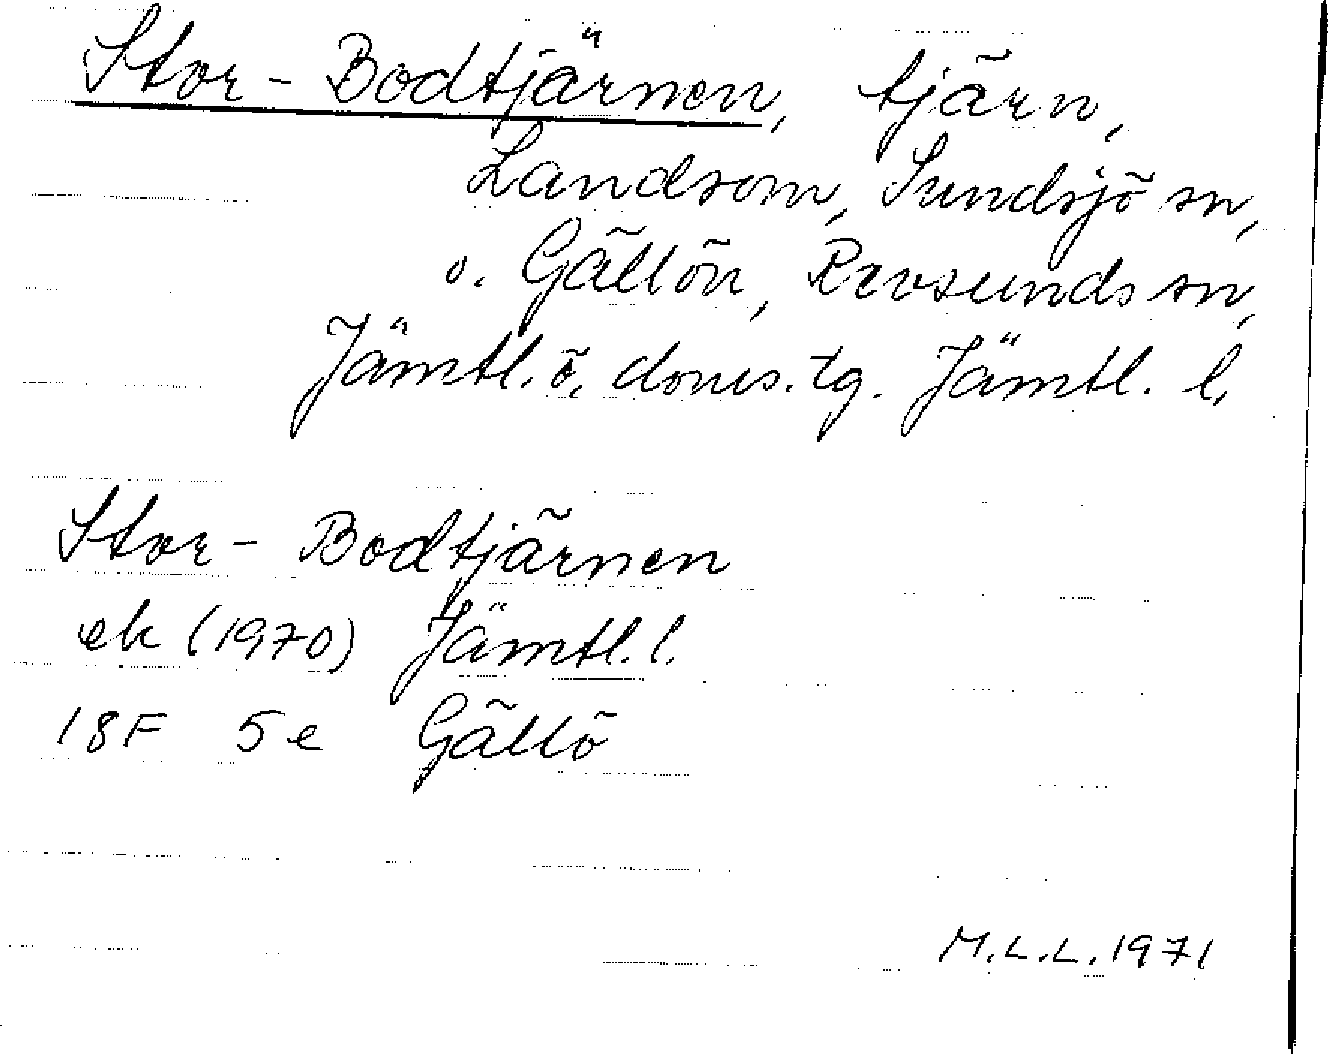 Stor-Bodtjärnen, tjärn,
Landsom, Sundsjö sn,
o. Gällön, Revsunds sn,
Jämtl. ö. doms. tg. Jämtl. l.
Stor-Bodtjärnen
ek (1970) Jämtl. l.
18F 5e Gällö
M.L.L. 1971